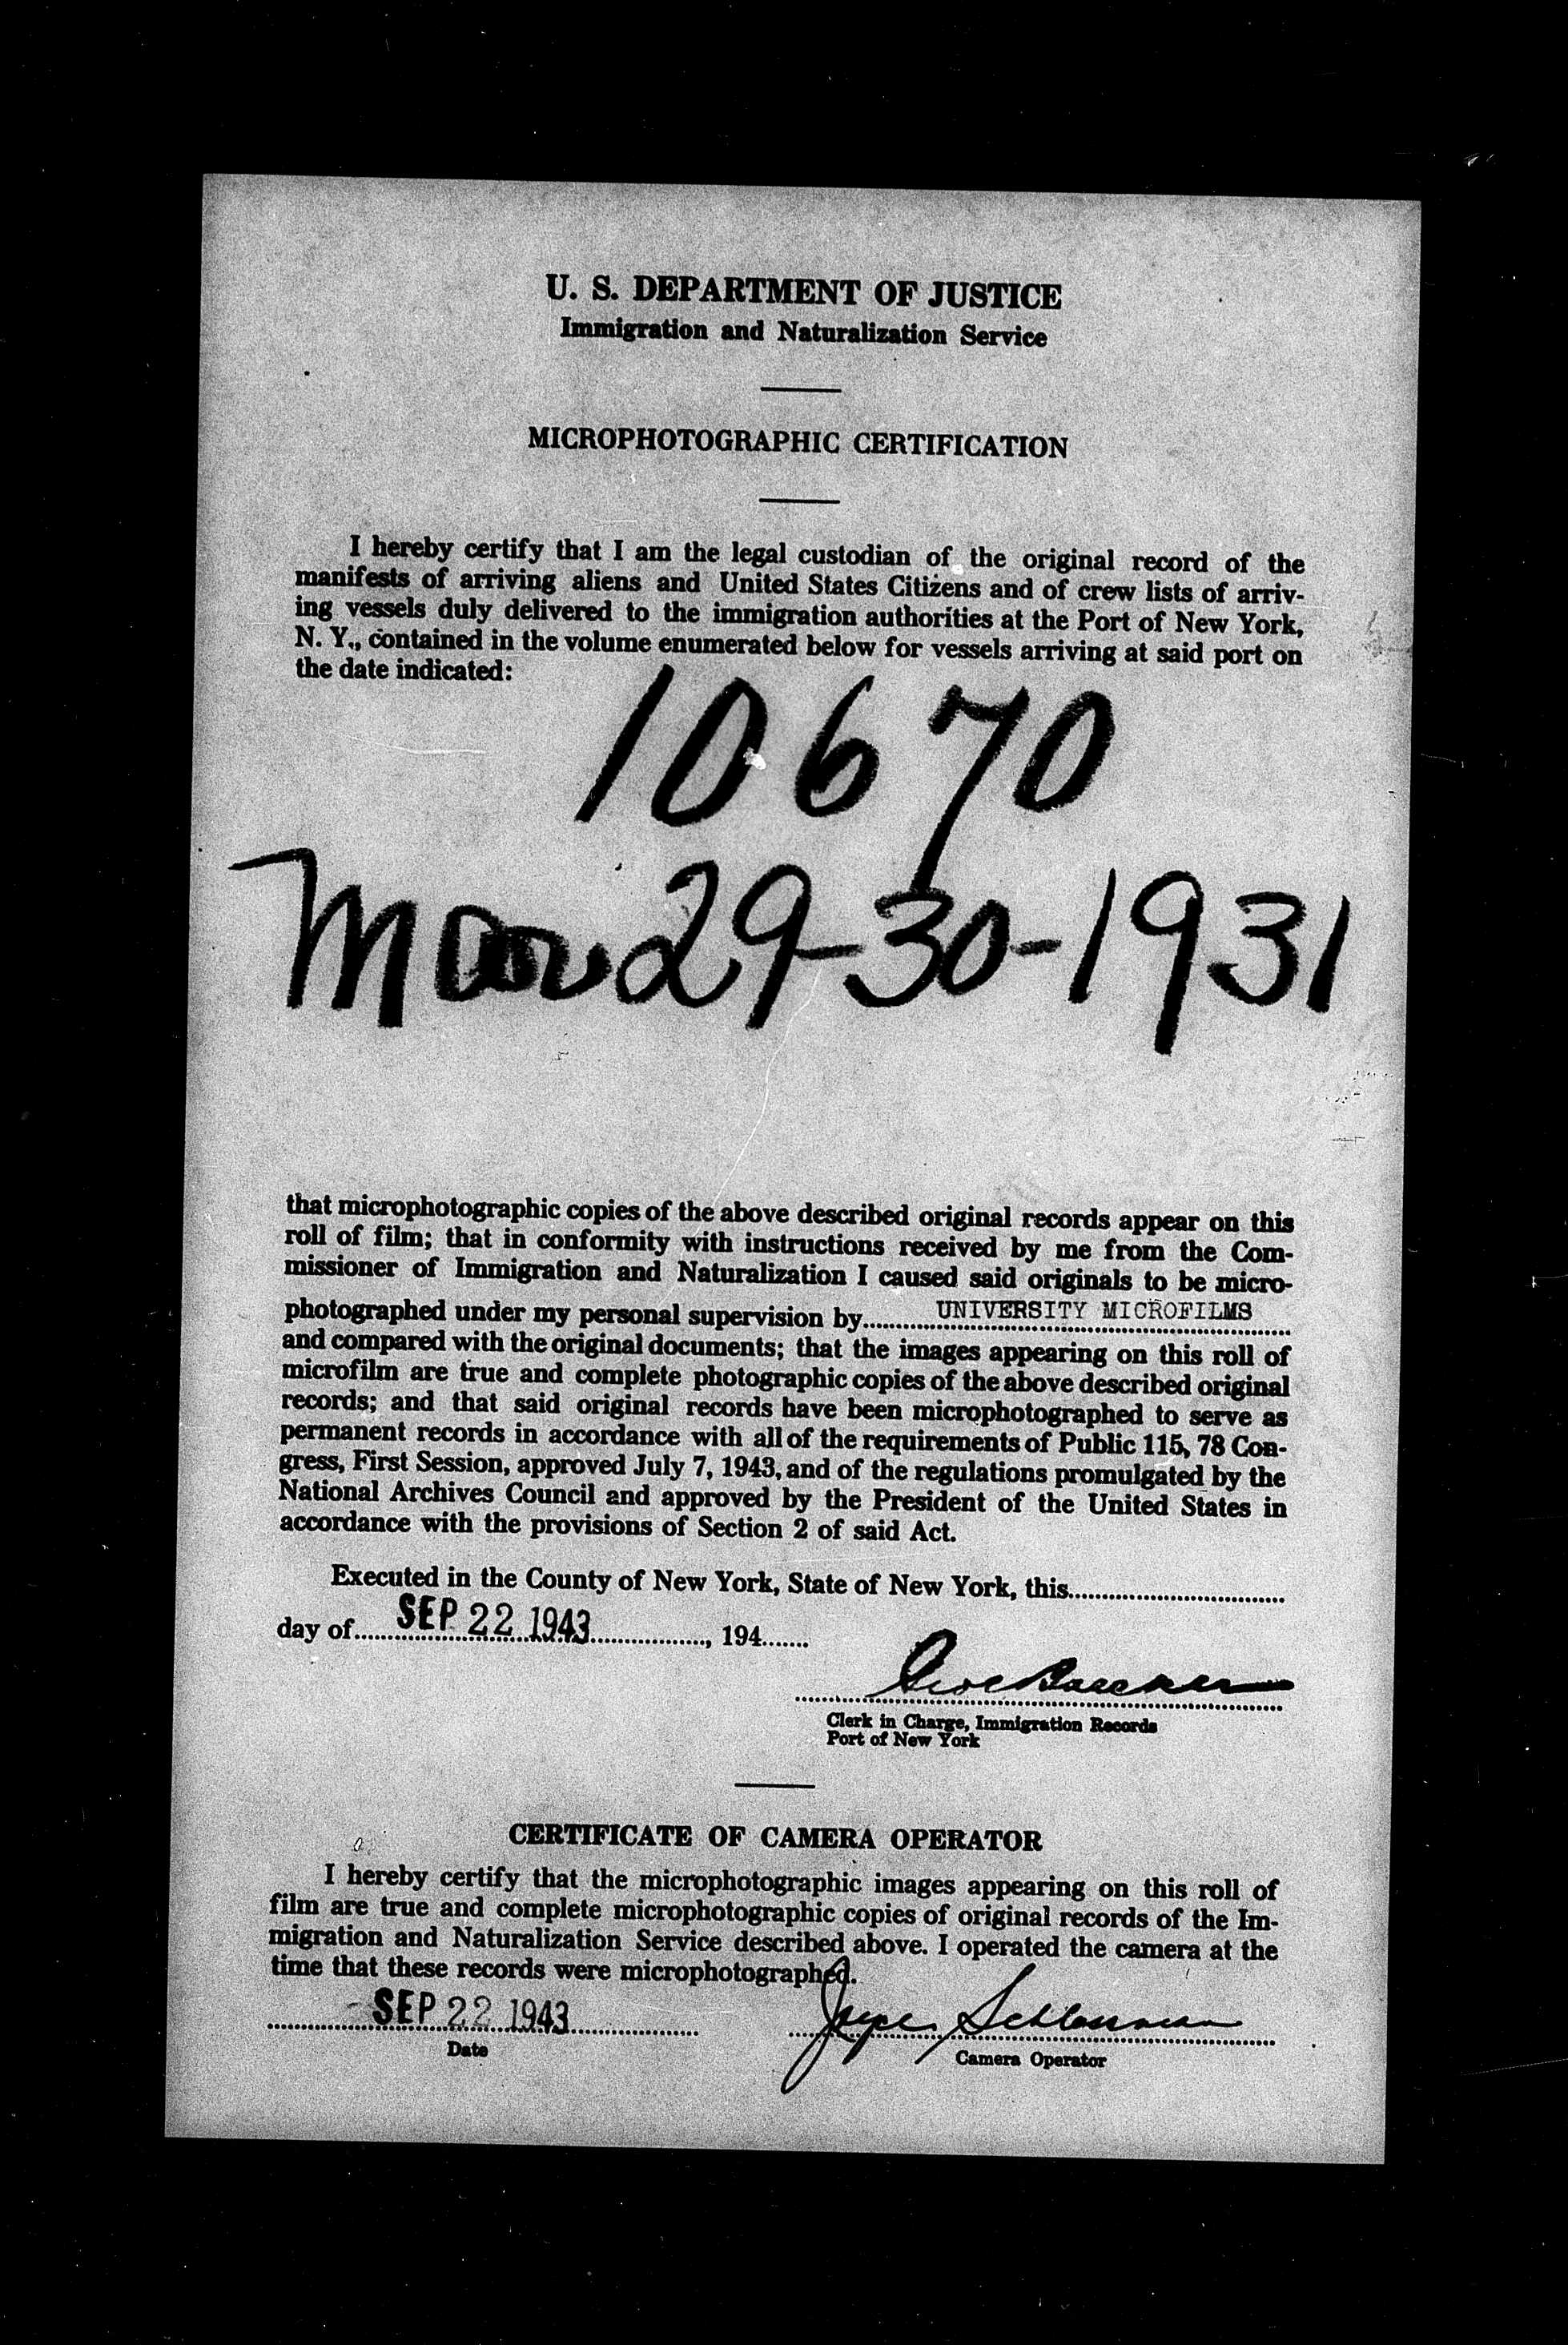 U. S. DEPARTMENT OF JUSTICE
Immigration and Naturalization Service
MICROPHOTOGRAPHIC CERTIFICATION
I hereby certify that I am the legal custodian of the original record of the
manifests of arriving aliens and United States Citizens and of crew lists of arriv-
ing vessels duly delivered to the immigration authorities at the Port of New York,
N. Y., contained in the volume enumerated below for vessels arriving at said port on
the date indicated:
10670
29-30-1931
that microphotographic copies of the above described original records appear on this
roll of film; that in conformity with instructions received by me from the Com-
missioner of Immigration and Naturalization I caused said originals to be micro-
photographed under my personal supervision by UNIVERSITY MICROFILMS
and compared with the original documents; that the images appearing on this roll of
microfilm are true and complete photographic copies of the above described original
records; and that said original records have been microphotographed to serve as
permanent records in accordance with all of the requirements of Public 115, 78 Con-
gress, First Session, approved July 7, 1943, and of the regulations promulgated by the
National Archives Council and approved by the President of the United States in
accordance with the provisions of Section 2 of said Act.
Executed in the County of New York, State of New York, this
day of SEP 22 1943, 194
Clerk in Charge, Immigration Records
Port of New York
CERTIFICATE OF CAMERA OPERATOR
I hereby certify that the microphotographic images appearing on this roll of
film are true and complete microphotographic copies of original records of the Im-
migration and Naturalization Service described above. I operated the camera at the
time that these records were microphotographed.
SEP 22 1943
Date
Camera Operator